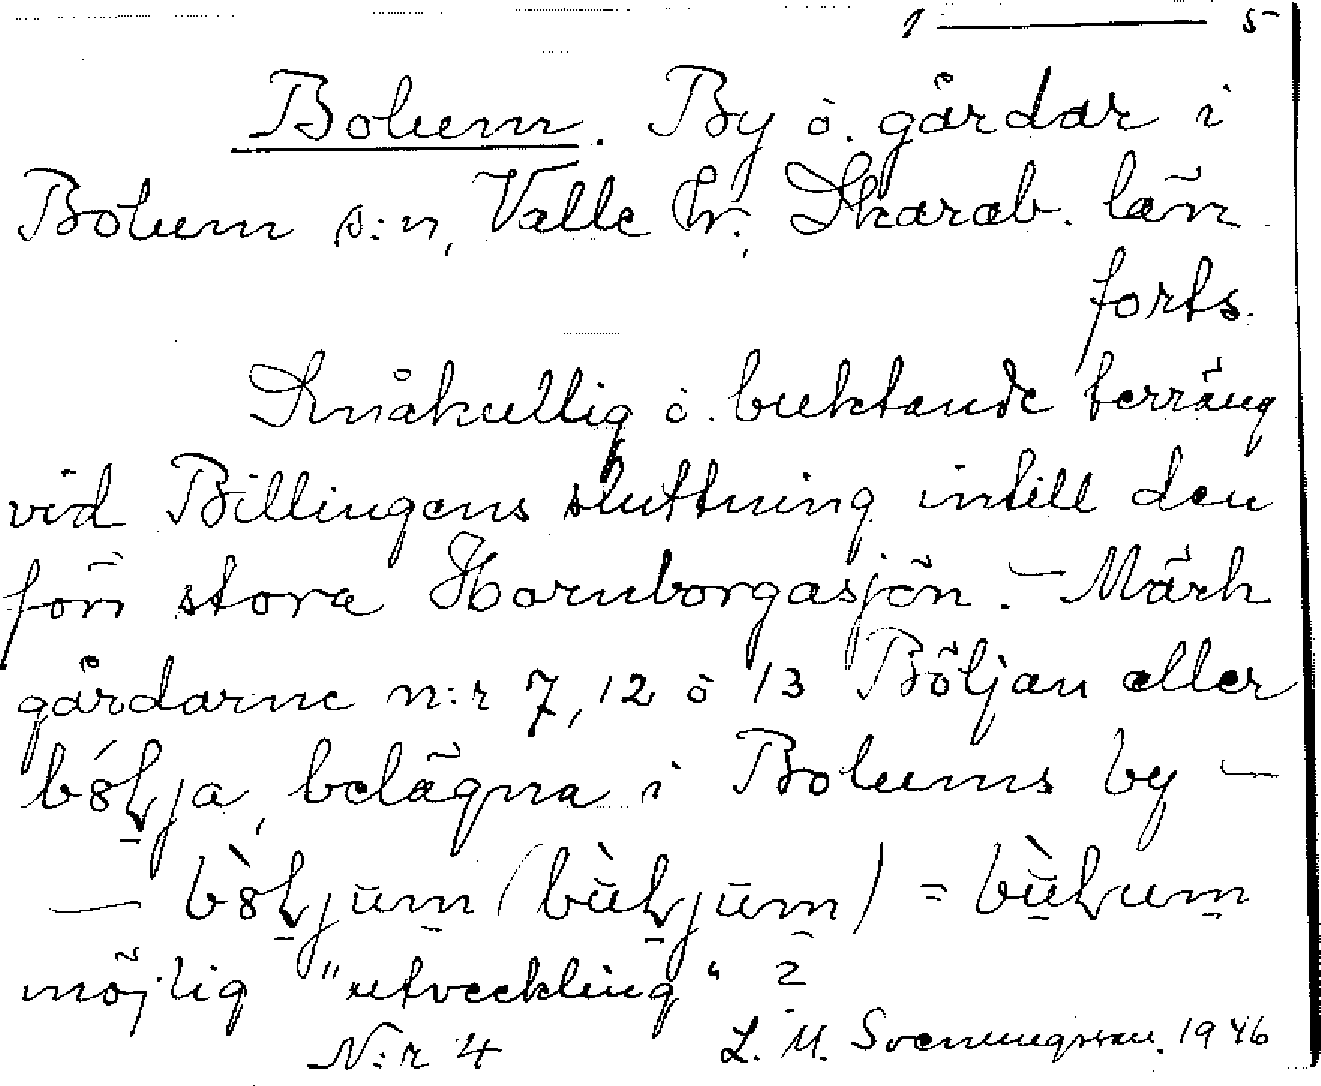 1 — 5
Bolum. By o. gårdar i
Bolum s:n, Valle hr., Skarab. län
forts.
Småkullig o. buktande terräng
vid Billingens sluttning intill den
förr stora Hornborgasjön. — Märk
gårdarne n:r 7, 12 o 13 Böljan eller
belägna i Bolums by —
möjlig "utveckling" ?
N:r 4 L. M. Svenungsson. 1946